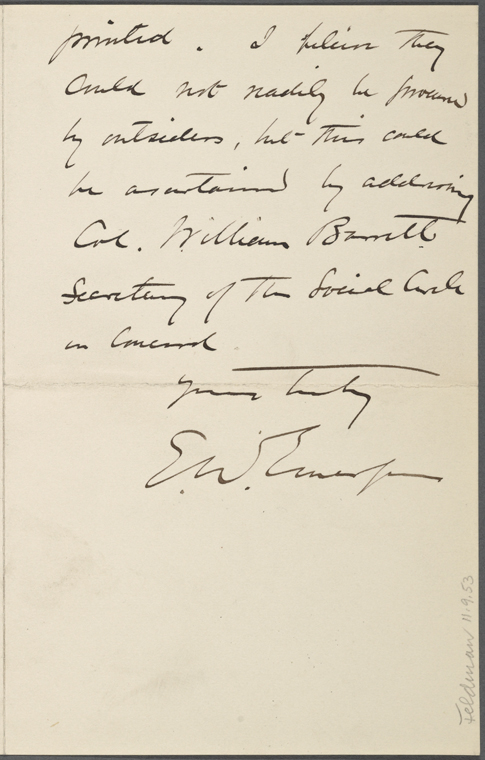 printed. I believe they
could not readily be procured
by outsiders, but this could
be ascertained by addressing
Col. William Barrett
Secretary of the Social Circle
in Concord
Yours truly
E. W. Emerson
Feldman 11.9.53